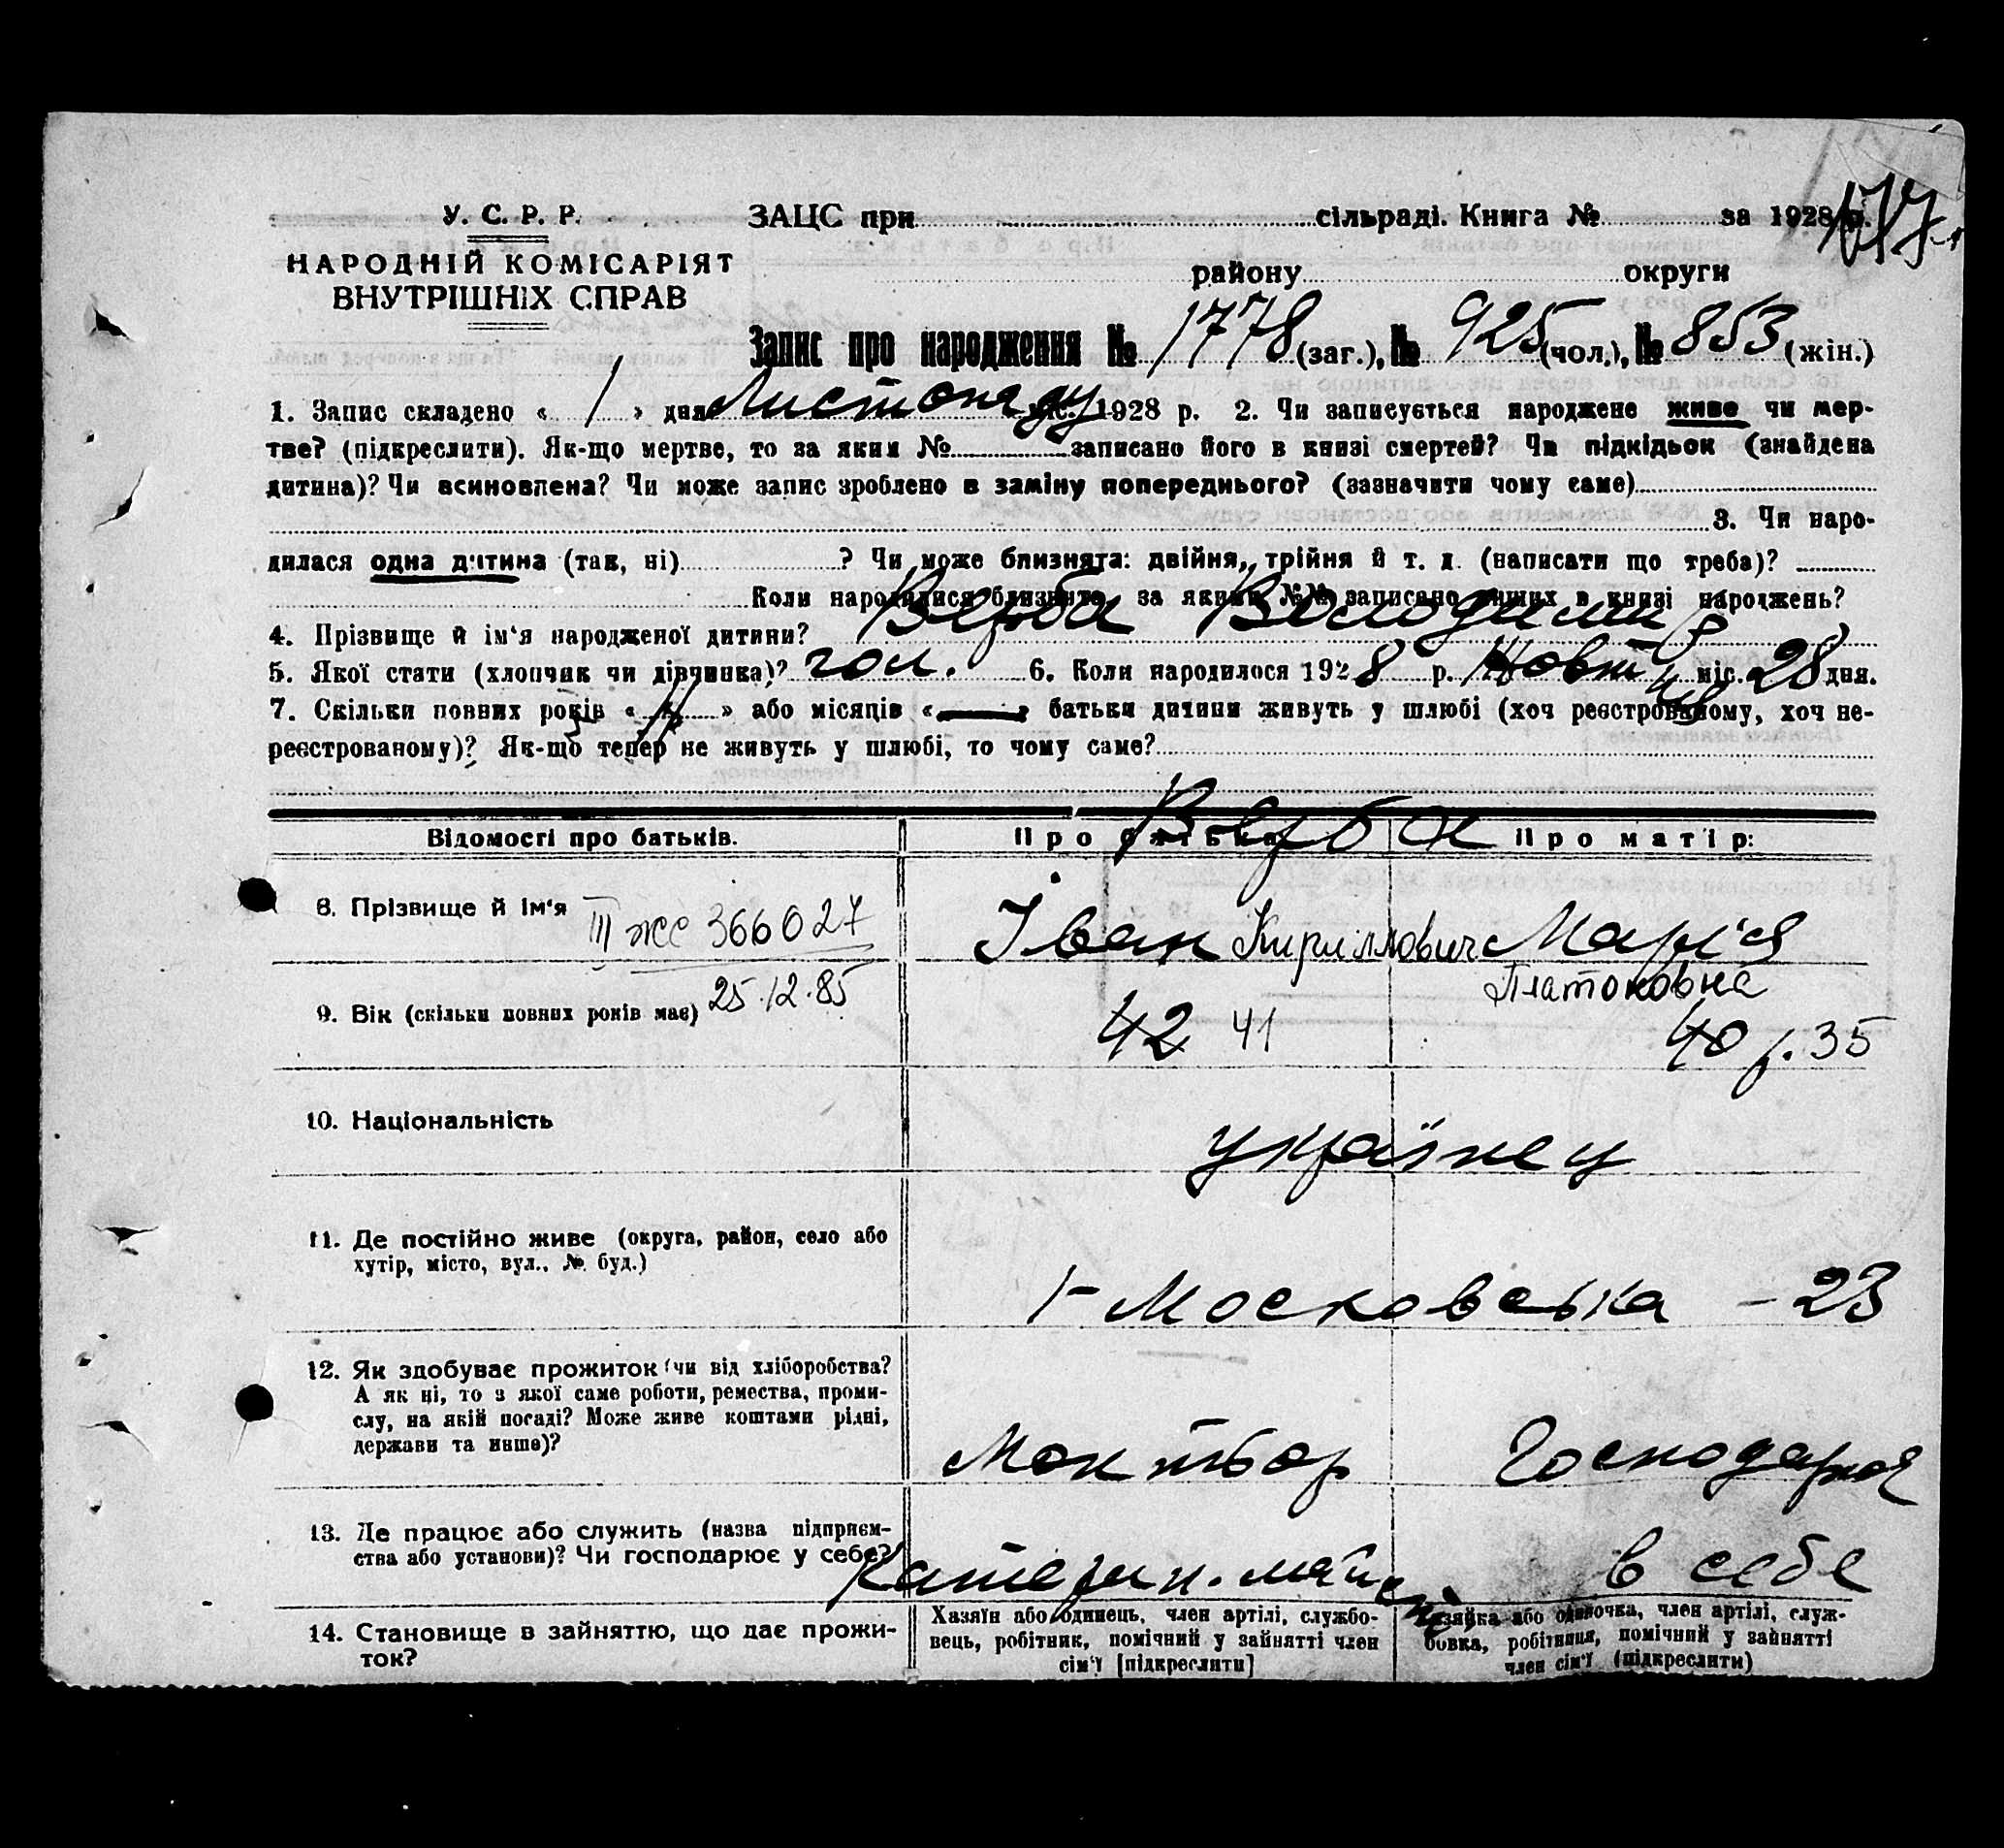 177.
У. С. Р. Р.
ЗАЦС при сільраді. Книга № за 1928 р.
НАРОДНІЙ КОМІСАРІЯТ
ВНУТРІШНІХ СПРАВ
району округи
Запис про народження № 1778 (заг.), № 925 (чол.), № 853 (жін.)
1. Запис складено « 1 » дня Листопаду міс. 1928 р. 2. Чи записується народжене живе чи мер-
тве? (підкреслити). Як-що мертве, то за яким № записано його в книзі смертей? Чи підкідьок (знайдена
дитина)? Чи всиновлена? Чи може запис зроблено в заміну попереднього? (зазначити чому саме)
3. Чи наро-
дилася одна дитина (так, ні) ? Чи може близнята: двійня, трійня й т. д. (написати що треба)?
Коли народилися близнята, за якими №№ записано инших в книзі народжень?
4. Прізвище й ім‘я народженої дитини? Верба Володимир
5. Якої стати (хлопчик чи дівчинка)? чол. 6. Коли народилося 1928 р. Жовтня міс. 28 дня.
7. Скільки повних років « » або місяців « » батьки дитини живуть у шлюбі (хоч реєстрованому, хоч не-
реєстрованому)? Як-що тепер не живуть у шлюбі, то чому саме?
Верба
Відомості про батьків. Про батька Про матір:
8. Прізвище й ім‘я III жс 366027 Іван Кириллович Марія
Платоновна
9. Вік (скільки повних років має) 25.12.85 42 41 40 р. 35
10. Національність українец
11. Де постійно живе (округа, район, село або
хутір, місто, вул., № буд.)
1-Московська - 23
12. Як здобуває прожиток (чи від хліборобства?
А як ні, то з якої саме роботи, ремества, проми-
слу, на якій посаді? Може живе коштами рідні,
держави та инше)?
Монтьор Господарка
13. Де працює або служить (назва підприєм-
ства або установи)? Чи господарює у себе?
Катерин. майст. в себе
14. Становище в зайняттю, що дає прожи-
ток?
Хазяїн або одинець, член артілі, службо-
вець, робітник, помічний у зайнятті член
сім‘ї [підкреслити]
Хазяйка або одиночка, член артілі, служ-
бовка, робітниця, помічний у зайнятті
член сім‘ї (підкреслити)